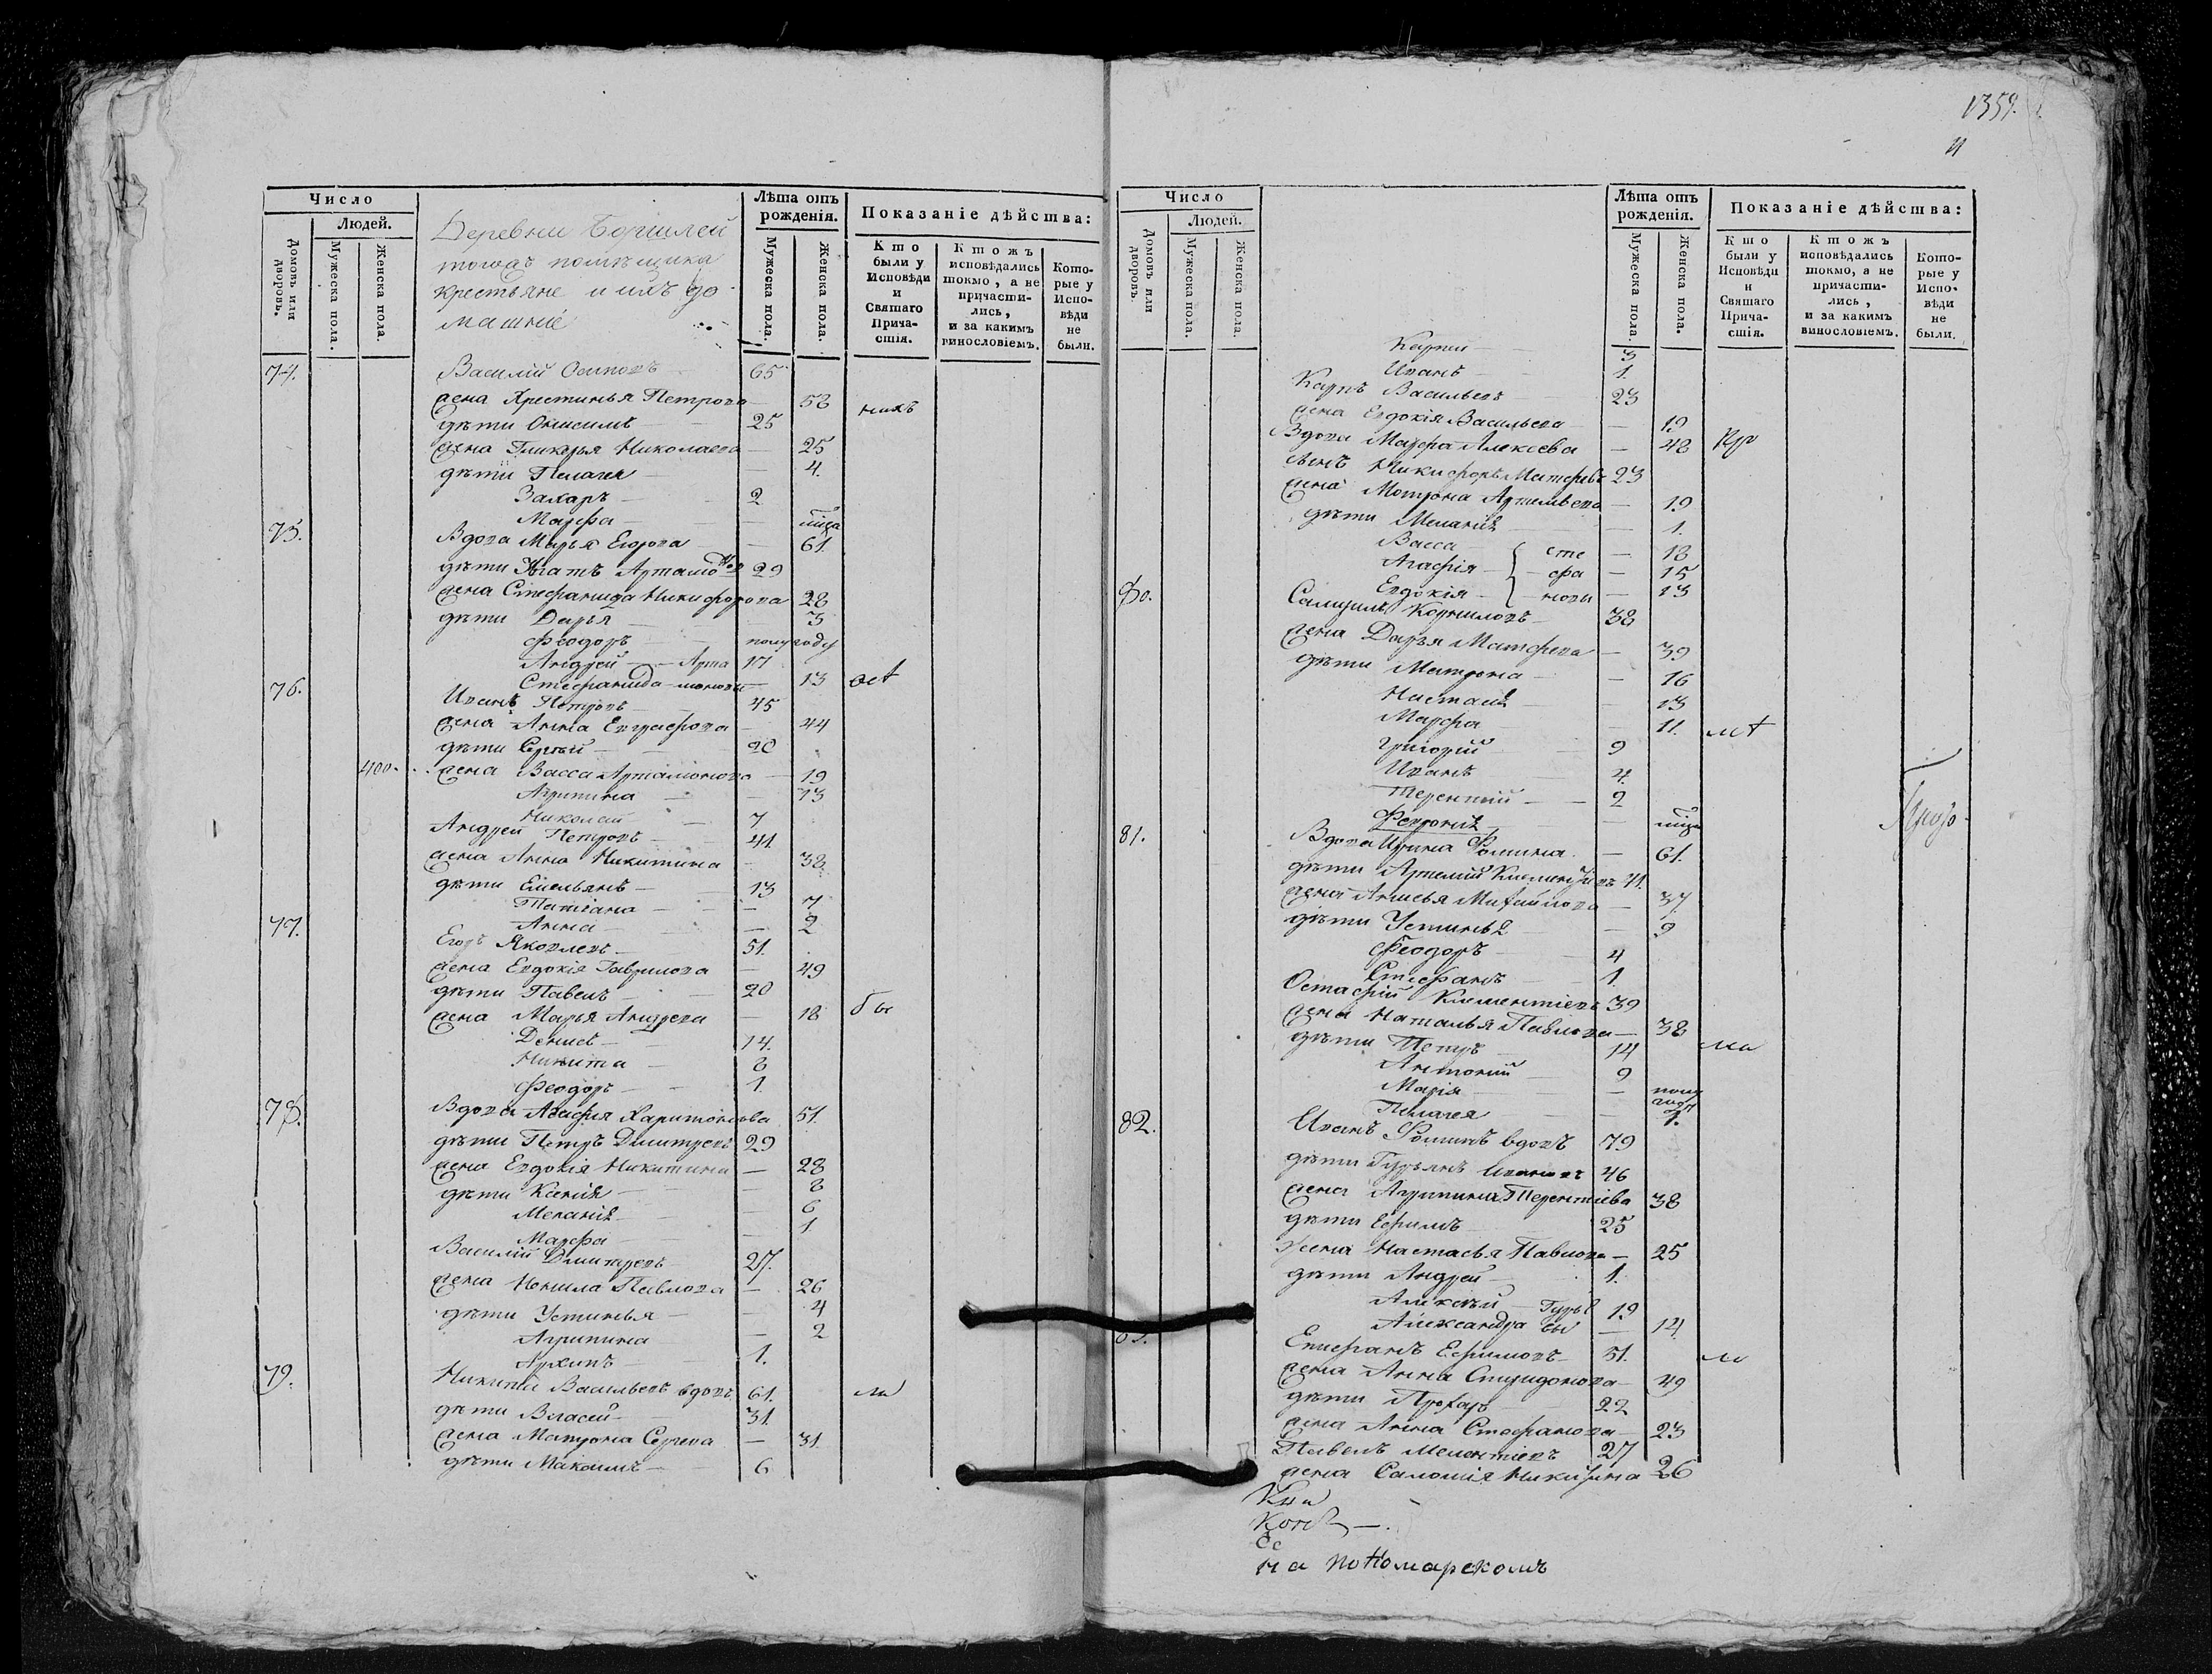 Число
Людей.
Домовъ или дворовъ.
Мужеска пола.
Женска пола.
Деревни
тогожъ помѣщика
крестьяне и ихъ до
машніе
Лѣта отъ рожденія.
Мужеска пола.
Женска пола.
Показаніе дѣйства:
Кто были у Исповѣди и Святаго Причастія.
Ктожъ исповѣдались токмо, а не причастились, и за какимъ винословіемъ.
Которые у Исповѣди не были.
74. Василій Осиповъ 65
жена Христинья Петрова — 58
дѣти Онисимъ 25
жена Гликерья Николаева — 25
дѣти Пелагея — 4.
Захаръ 2
Марфа —
75. Вдова Марья Егорова — 61.
дѣти Артамо 29
жена Стефанида Никифорова 28
дѣти Дарья 3
Феодоръ полугоду
Андрей — Арта 17
Стефанида — моновы — 13
76. Иванъ Петровъ 45
жена Анна Евграфова — 44
дѣти Сергѣй 20
400. жена Васса Артамонова — 19
Агрипина — 13
Николай 7
Андрей Петровъ 41
жена Анна Никитина — 38
дѣти Емельянъ 13
Татіана — 7
Анна — 2
77. Егоръ Яковлевъ 51.
жена Евдокія Гаврилова — 49
дѣти Павелъ 20
жена Марья Андреева — 18 бы
Денисъ 14.
Никита 8
Феодоръ 1.
78. Вдова Агафья Харитоньева 51.
дѣти Петръ Дмитревъ 29
жена Евдокія Никитина — 28
дѣти Ксенія — 8
Меланія — 6
Марфа — 1
Василій Дмитревъ 27.
жена Ненила Павлова — 26
дѣти Устинья — 4
Агрипина — 2
Архипъ 1.
79. Никита Васильевъ вдовъ 61. ли
дѣти Власей 31.
жена Матрона Сергева — 31
дѣти Максимъ 6
1359.
Число
Людей.
Домовъ или дворовъ.
Мужеска пола.
Женска пола.
Лѣта отъ рожденія.
Мужеска пола.
Женска пола.
Показаніе дѣйства:
Кто были у Исповѣди и Святаго Причастія.
Ктожъ исповѣдались токмо, а не причастились, и за какимъ винословіемъ.
Которые у Исповѣди не были.
3
Иванъ 1.
Карпъ Васильевъ 23
жена Евдокія Васильева — 19
Вдова Марфа Алексѣева — 48
сынъ Никифоръ Матфевъ 23
жена Мотрона Артемьева — 19
дѣти Меланія — 1.
Васса сте — 18
Агафія фа — 15
Евдокія новы — 13
80. Самуилъ Корниловъ 38
жена Дарья Матфева — 39
дѣти Матрона — 16
Настасія — 13
Марфа — 11.
Григорій 9
Иванъ 4.
Терентій 2
Февронія —
81. Вдова Ирина Фомина — 61.
дѣти Артемій Климентіевъ 41.
жена Анисья Михайлова — 37.
дѣти Устинья — 9
Феодоръ 4
Стефанъ 1.
Остафій Климентіевъ 39
жена Наталья Павлова — 38
дѣти Петръ 14
Антоній 9
Марія —
Пелагея — 1.
82. Иванъ Фоминъ вдовъ 79
дѣти Гурьянъ Ивановъ 46
жена Агрипина Терентіева 38
дѣти Ефимъ 25
Жена Настасья Павлова — 25
дѣти Андрей 1.
Алексѣй — Гурья 19
Александра — 14.
Епифанъ Ефимовъ 51.
жена Анна Спиридонова — 49
дѣти Прохоръ 22
жена Анна Стефанова — 23
Павелъ Мелентіевъ 27
жена Саломія Никитина 26
на пономарскомъ